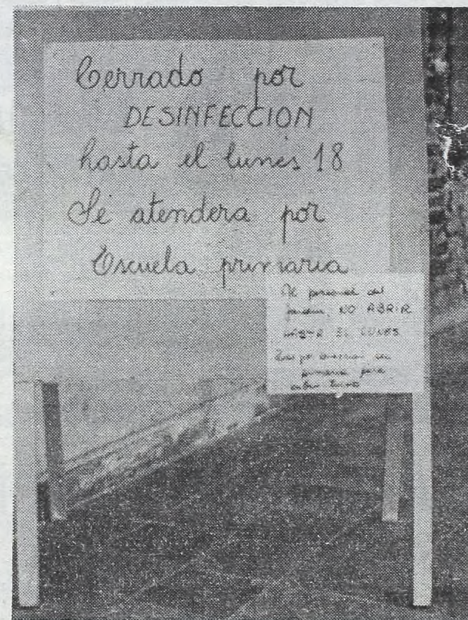 Cerrado por
DESINFECCION
hasta el lunes 18
Se atendera por
Escuela primaria
Al personal del
Jardin, NO ABRIR
HASTA EL LUNES
primaria para